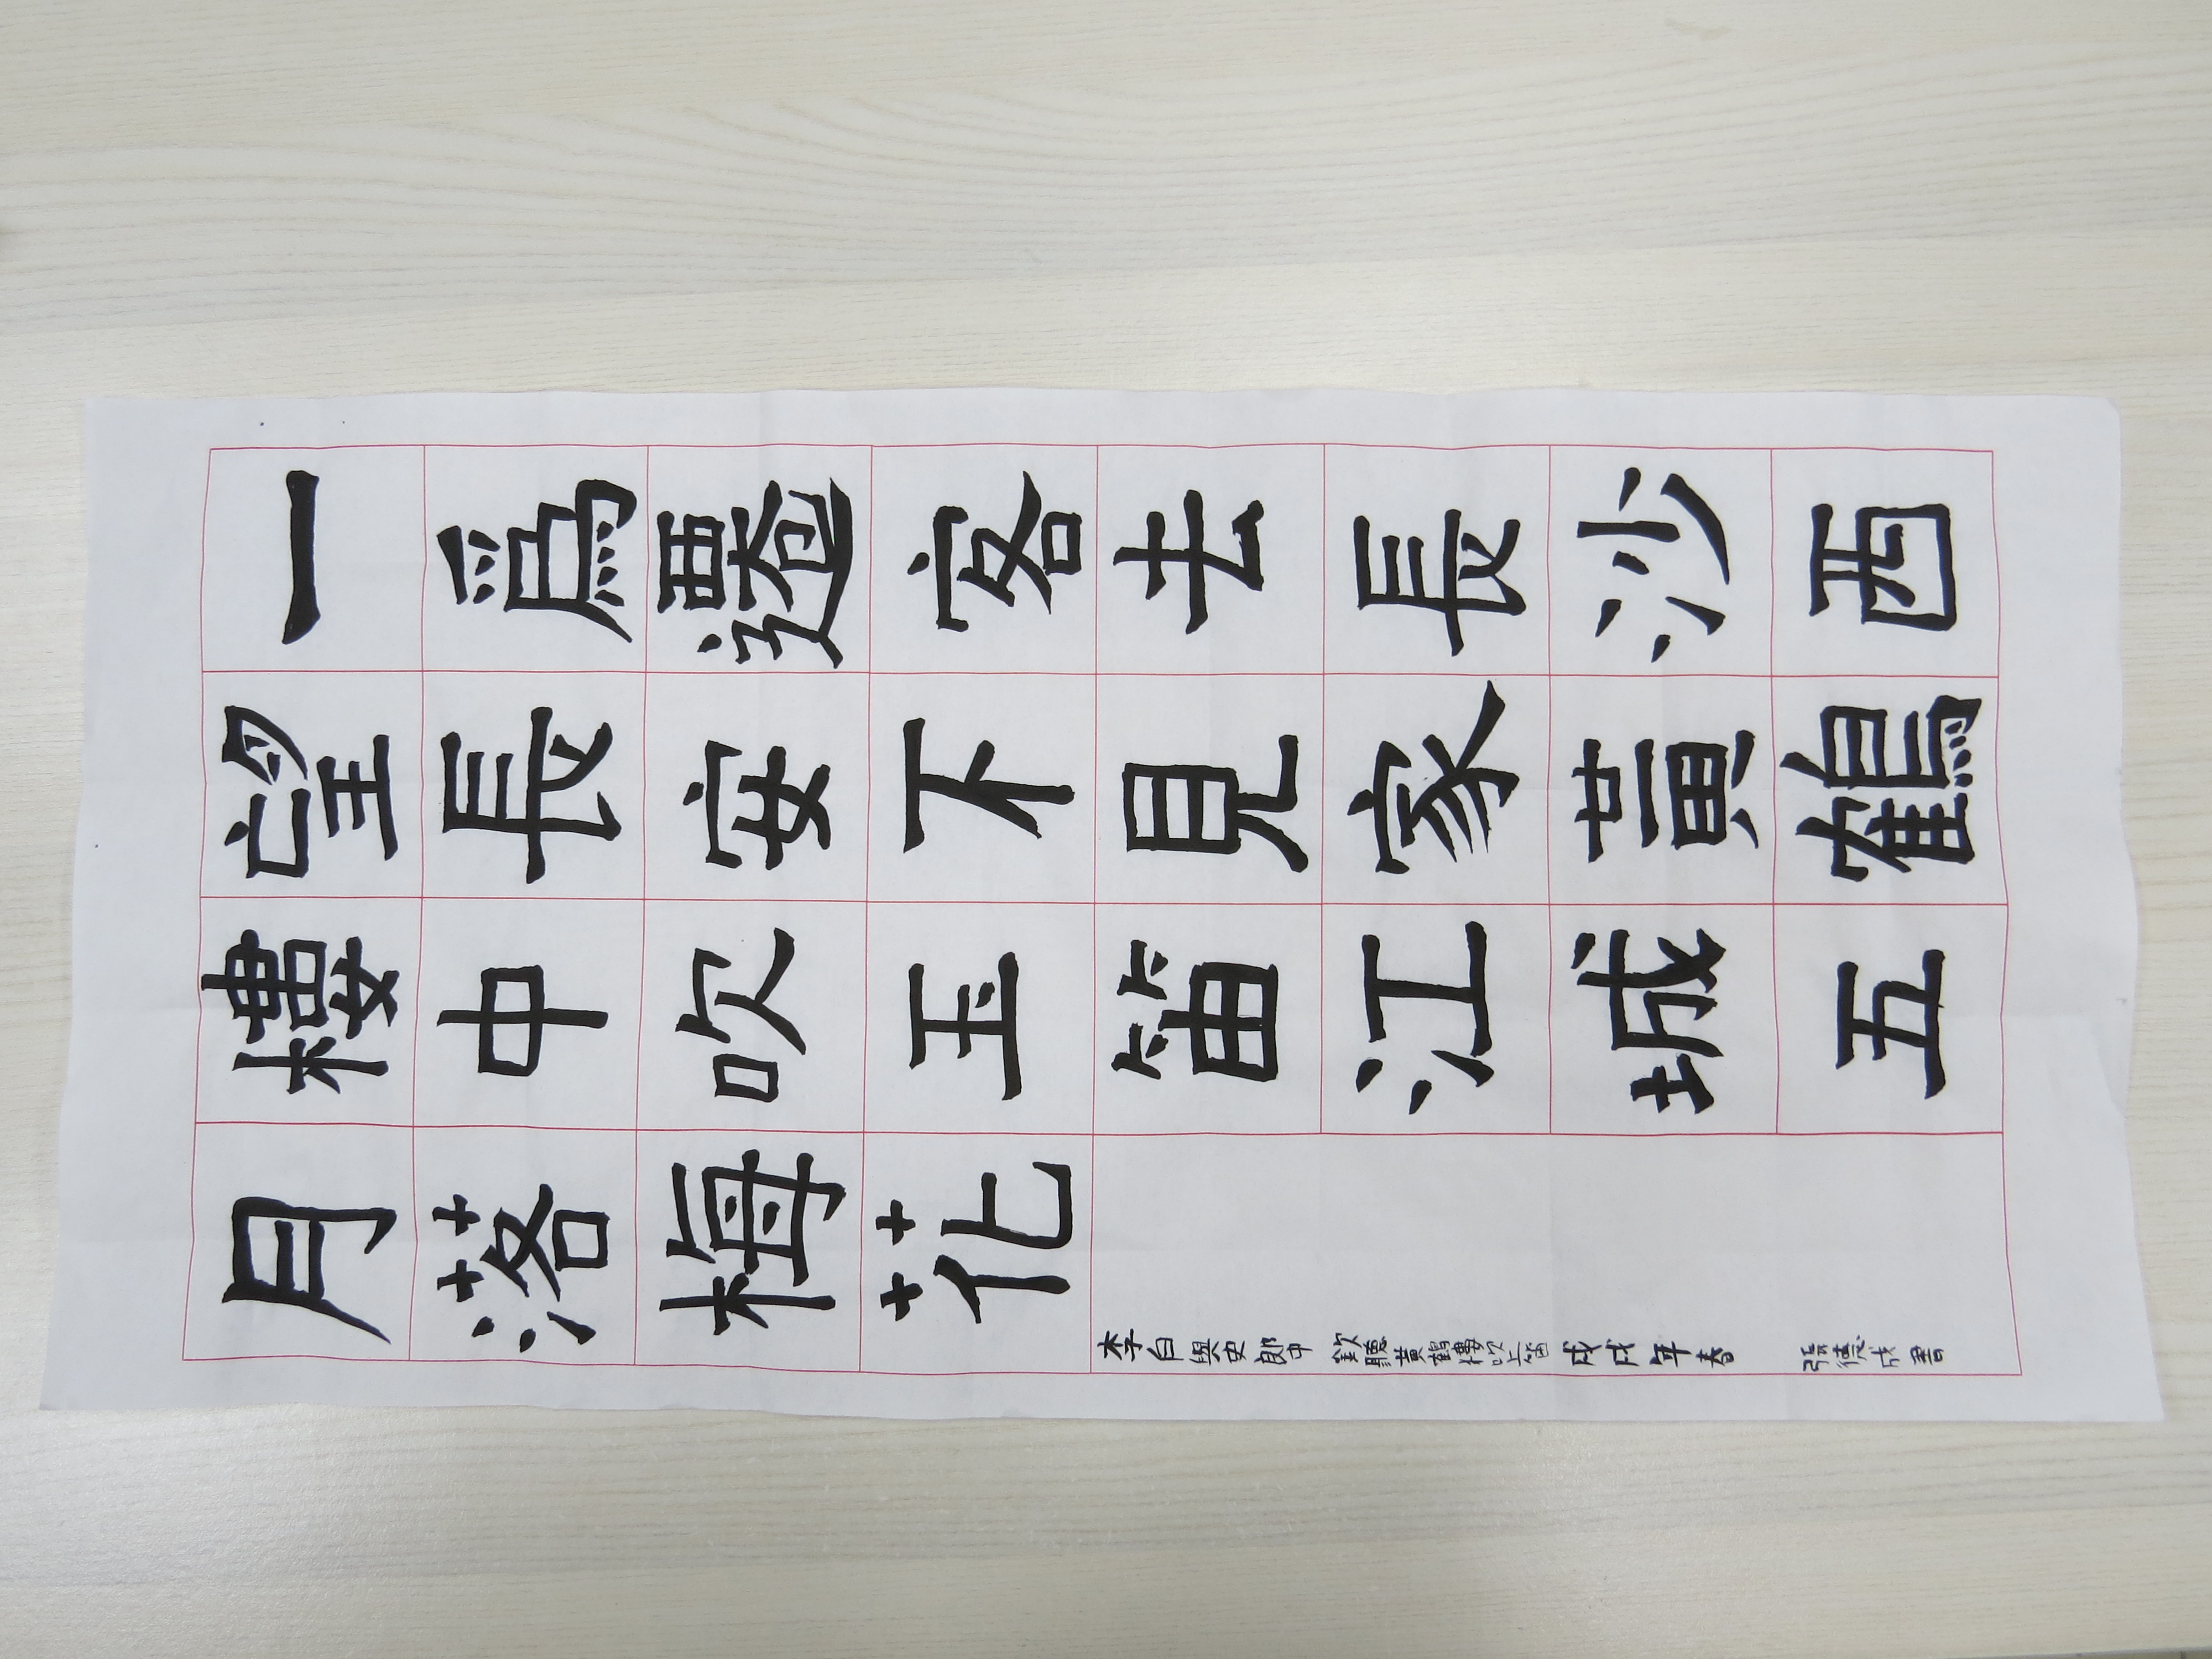 一爲遷客去長沙西
望長安不見家黃鶴
樓中吹玉笛江城五
月落梅花
李白與史郎中 欽聽黃鶴樓吹上笛 戊戌年春 張德成書